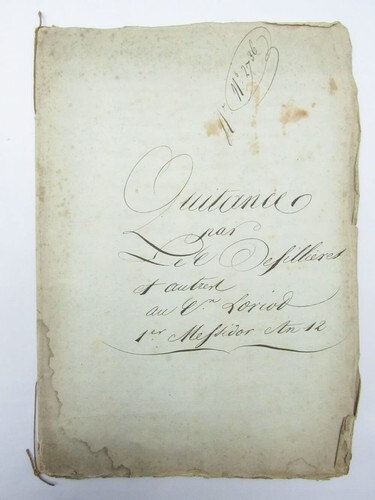 Nº 2736
Quitance
par
Defillieres
et autres
au Cen Loriod
1er Messidor An 12